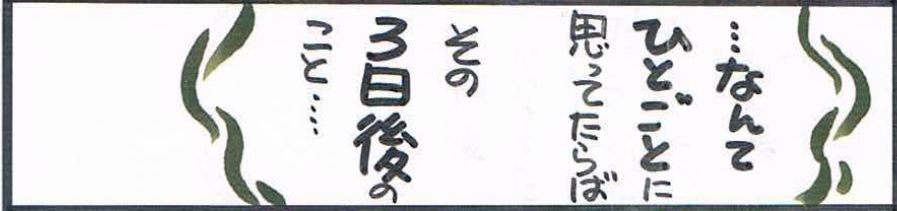 …なんて
ひとごとに
思ってたらば
その
3日後の
こと…